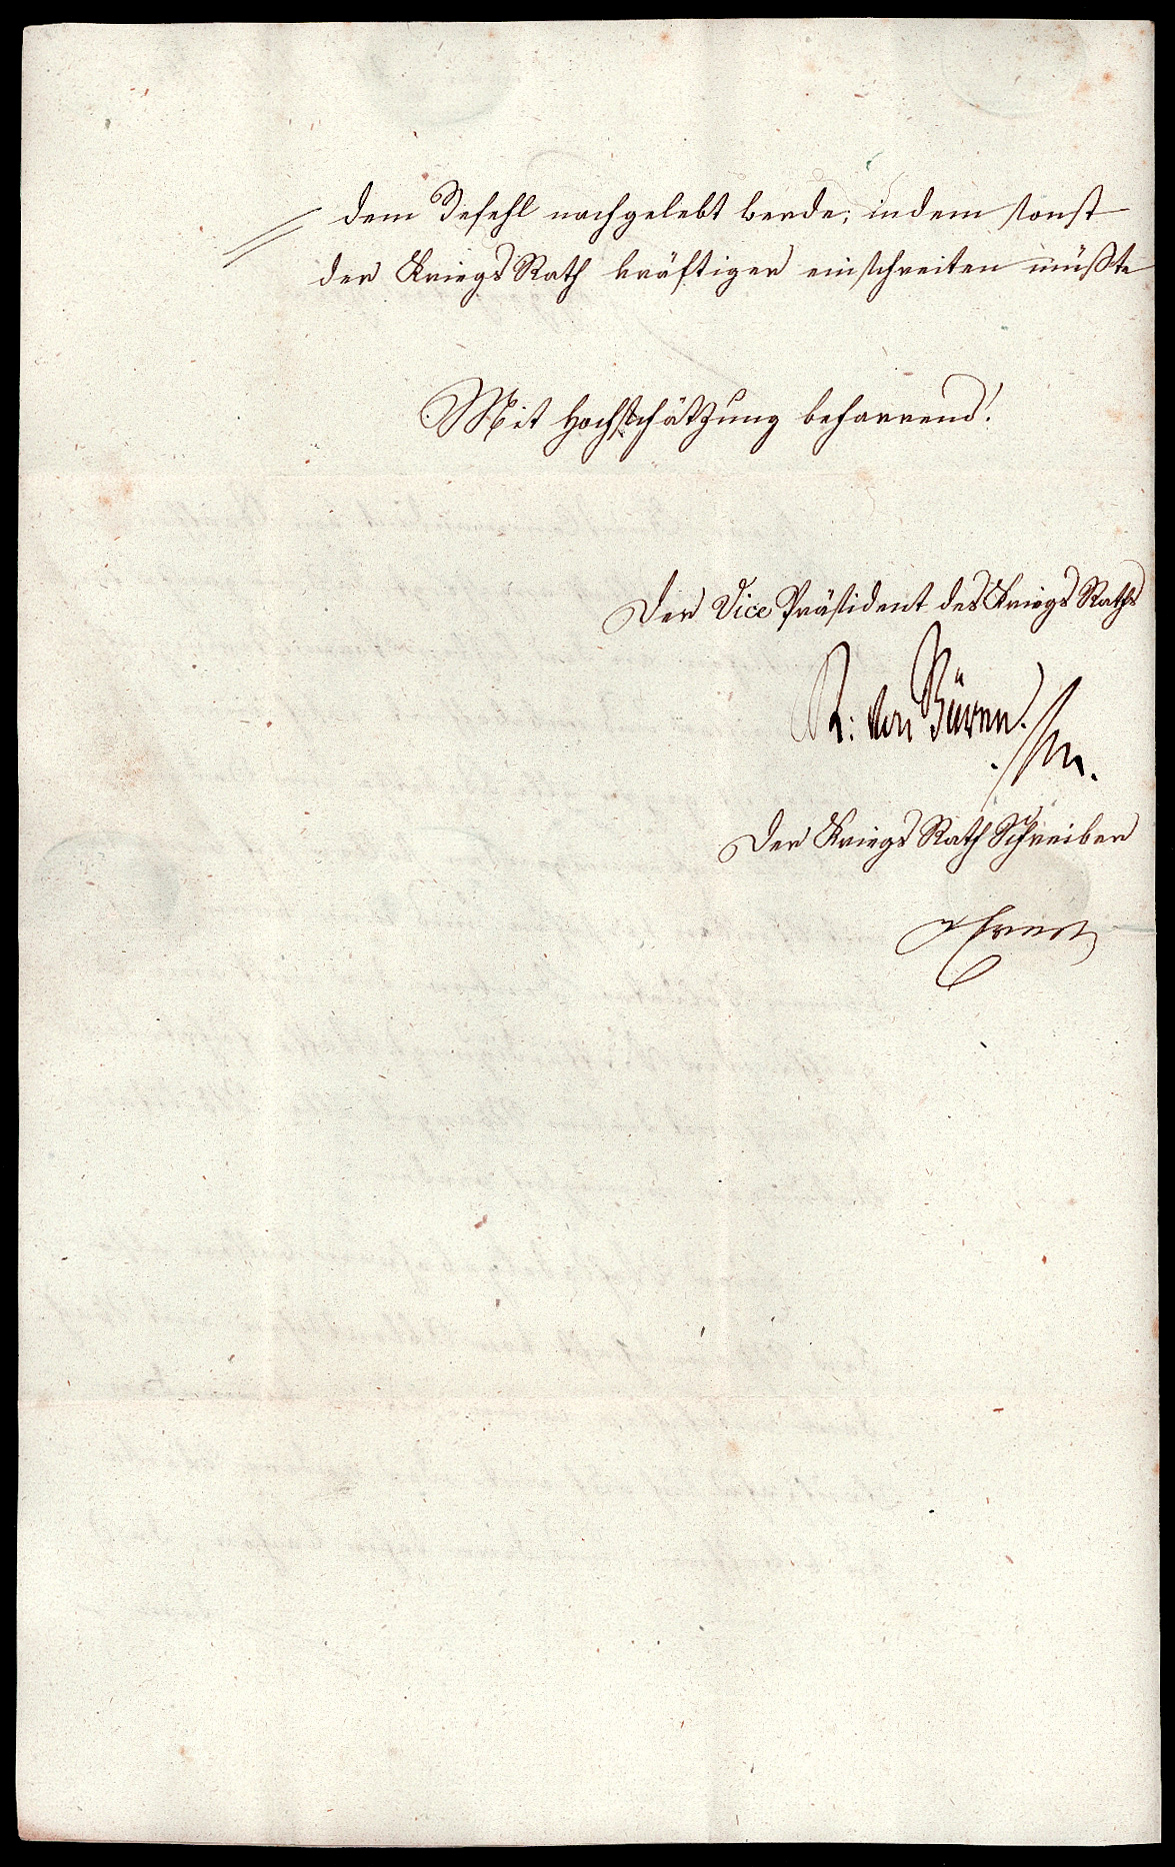 dem Befehl nachgelebt werde; indem sonst
der KriegsRath kräftiger einschreiten müßte
Mit Hochschätzung beharrend!
Der Vice Präsident des KriegsRaths
R: von Büren.
Der KriegsRath Schreiber
Ernst